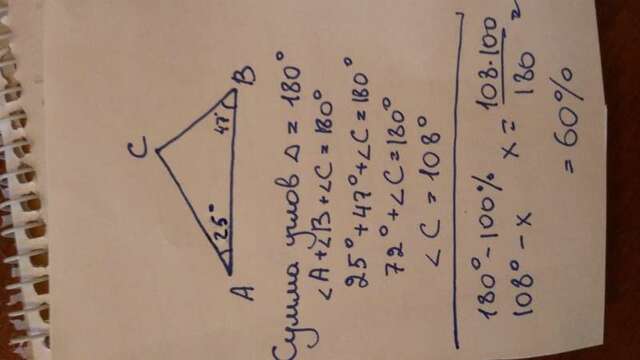 C
A 25° 47° B
Сумма углов Δ = 180°
∠A+∠B+∠C=180°
25°+47°+∠C=180°
72°+∠C=180°
∠C=108°
180°-100%
108°-x
x=108·100/180=
=60%